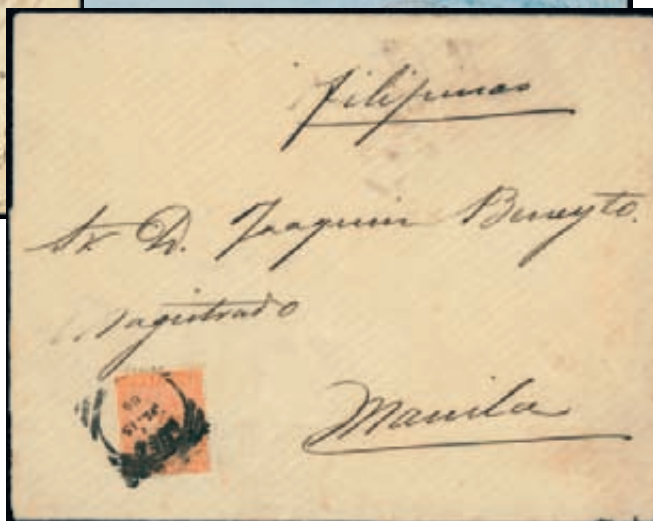 Filipinas
Sr. D. Joaquin Beneyto.
Magistrado
Manila